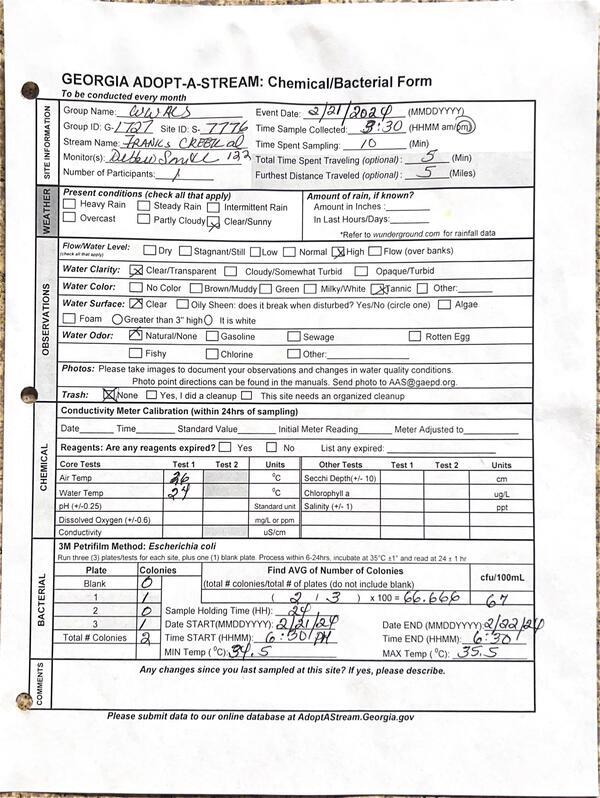 GEORGIA ADOPT-A-STREAM: Chemical/Bacterial Form
To be conducted every month
SITE INFORMATION
Group Name: WWALS Event Date: 2/21/2024 (MMDDYYYY)
Group ID: G-1727 Site ID: S-7776 Time Sample Collected: 3:30 (HHMM am/pm)
Stream Name: FRANKS CREEK at Time Spent Sampling: 10 (Min)
Monitor(s): 122 Total Time Spent Traveling (optional): 5 (Min)
Number of Participants: 1 Furthest Distance Traveled (optional): 5 (Miles)
WEATHER
Present conditions (check all that apply) Amount of rain, if known?
Heavy Rain Steady Rain Intermittent Rain Amount in Inches:
Overcast Partly Cloudy Clear/Sunny In Last Hours/Days:
*Refer to wunderground.com for rainfall data
OBSERVATIONS
Flow/Water Level: Dry Stagnant/Still Low Normal High Flow (over banks)
(check all that apply)
Water Clarity: Clear/Transparent Cloudy/Somewhat Turbid Opaque/Turbid
Water Color: No Color Brown/Muddy Green Milky/White Tannic Other:
Water Surface: Clear Oily Sheen: does it break when disturbed? Yes/No (circle one) Algae
Foam Greater than 3" high It is white
Water Odor: Natural/None Gasoline Sewage Rotten Egg
Fishy Chlorine Other:
Photos: Please take images to document your observations and changes in water quality conditions.
Photo point directions can be found in the manuals. Send photo to AAS@gaepd.org.
Trash: None Yes, I did a cleanup This site needs an organized cleanup
CHEMICAL
Conductivity Meter Calibration (within 24hrs of sampling)
Date Time Standard Value Initial Meter Reading Meter Adjusted to
Reagents: Are any reagents expired? Yes No List any expired:
Core Tests Test 1 Test 2 Units Other Tests Test 1 Test 2 Units
Air Temp 26 °C Secchi Depth(+/- 10) cm
Water Temp 24 °C Chlorophyll a ug/L
pH (+/-0.25) Standard unit Salinity (+/- 1) ppt
Dissolved Oxygen (+/-0.6) mg/L or ppm
Conductivity uS/cm
BACTERIAL
3M Petrifilm Method: Escherichia coli
Run three (3) plates/tests for each site, plus one (1) blank plate. Process within 6-24hrs, incubate at 35°C ±1° and read at 24 ± 1 hr
Plate Colonies Find AVG of Number of Colonies cfu/100mL
Blank 0 (total # colonies/total # of plates (do not include blank)
1 1 ( 2 / 3 ) x 100 = 66.666 67
2 0 Sample Holding Time (HH): 24
3 1 Date START(MMDDYYYY): 2/21/24 Date END (MMDDYYYY): 2/22/24
Total # Colonies 2 Time START (HHMM): 6:30 PM Time END (HHMM): 6:30
MIN Temp (°C): 34.5 MAX Temp (°C): 35.5
COMMENTS
Any changes since you last sampled at this site? If yes, please describe.
Please submit data to our online database at AdoptAStream.Georgia.gov